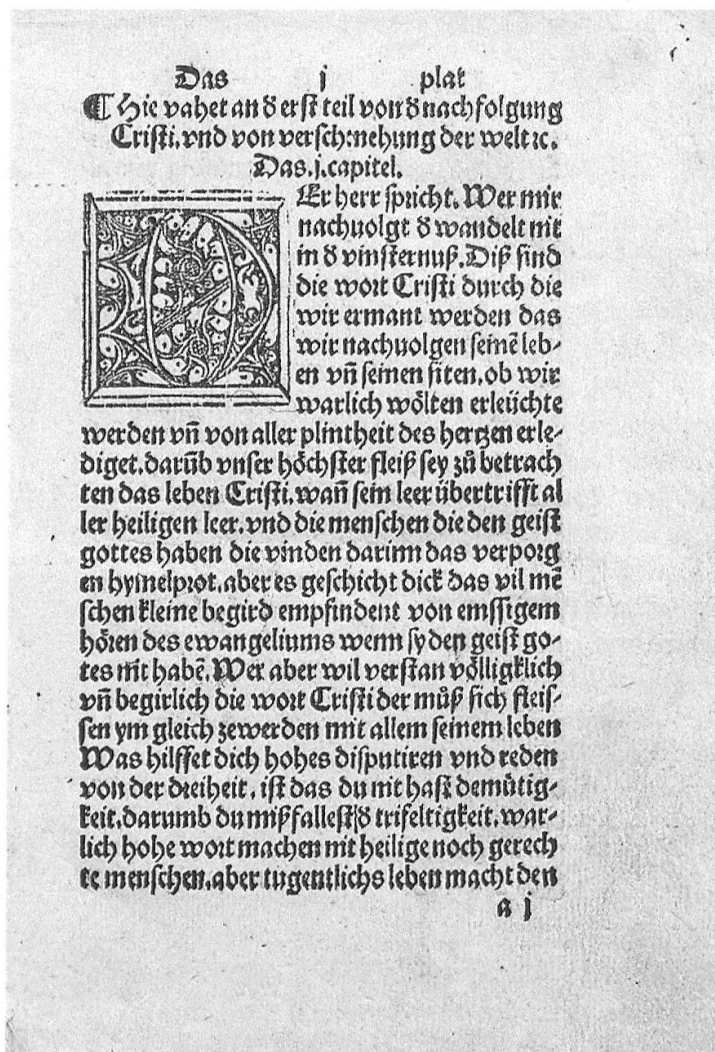 Das j plat
¶ Hie vahet an d̕ erst teil von d̕ nachfolgung
Cristi. vnd von verschmehung der welt ⁊c.
Das .j. capitel.
DEr herr spricht. Wer mir
nachuolgt d̕ wandelt nit
in d̕ vinsternuß. Diß sind
die wort Cristi durch die
wir ermant werden das
wir nachuolgen seinē leb⸗
en vn̄ seinen siten. ob wir
warlich wölten erleüchte
werden vn̄ von aller plintheit des hertzen erle⸗
diget. darūb vnser höchster fleiß sey zů betrach
ten das leben Cristi. wan̄ sein leer übertrifft al
ler heiligen leer. vnd die menschen die den geist
gottes haben die vinden darinn das verporg
en hymelprot. aber es geschicht dick das vil mē
schen kleine begird empfindent von emssigem
hören des ewangeliums wenn sy den geist go⸗
tes nit habē. Wer aber wil verstan völligklich
vn̄ begirlich die wort Cristi der můß sich fleis⸗
sen ym gleich zewerden mit allem seinem leben
Was hilffet dich hohes disputiren vnd reden
von der dreiheit. ist das du nit hast demütig⸗
keit. darumb du mißfallest d̕ trifeltigkeit. war⸗
lich hohe wort machen nit heilige noch gerech
te menschen. aber tugentlichs leben macht den
a j